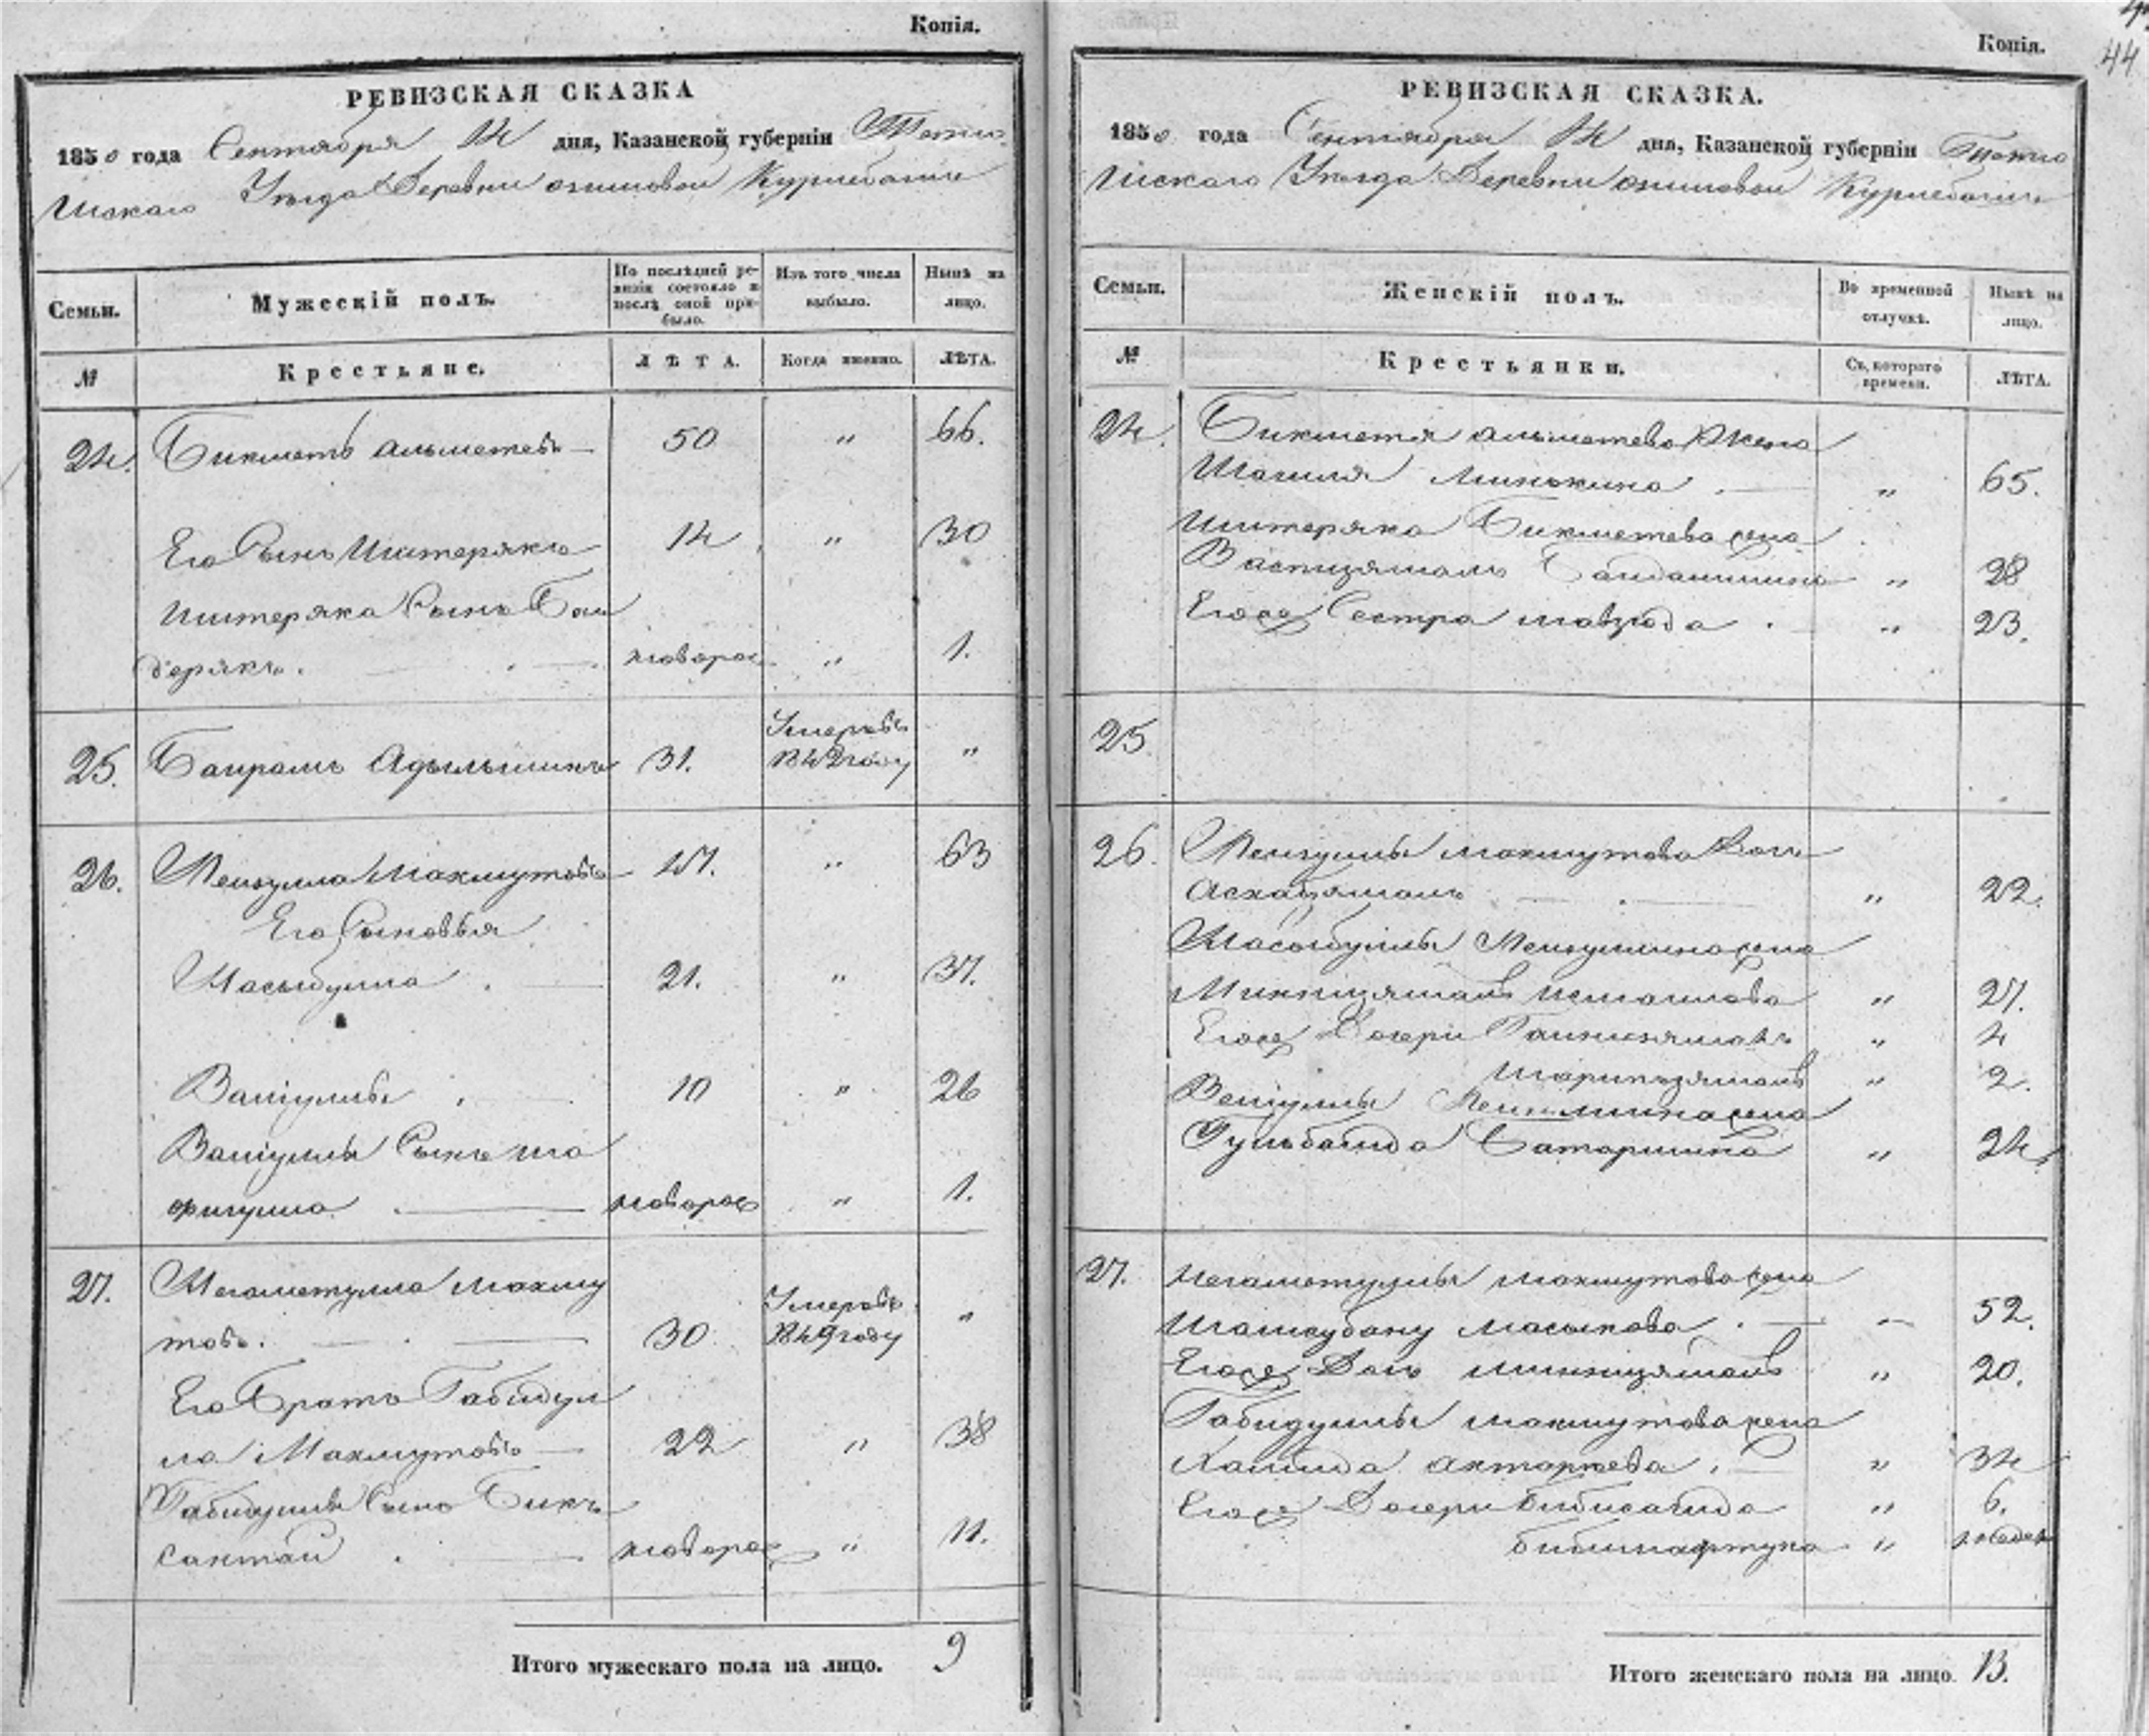 Копія.
РЕВИЗСКАЯ СКАЗКА
1850 года Сентября 14 дня, Казанской губерніи Тетю
шскаго Уѣзда Деревни
Семьи.
Мужескій полъ.
По послѣдней ре-
визіи состояло и
послѣ оной при-
было.
Изъ того числа
выбыло.
Нынѣ на
лицо.
№
Крестьяне.
ЛѢТА.
Когда именно.
ЛѢТА.
24. Бикметь Альметевъ 50 " 66.
Его Сынъ Иштерякъ 14 " 30
Иштеряка Сынъ Бай
дерякъ. новорож " 1.
Умеръ въ
25. Баирамъ Адильшинъ 31. 1842 году "
26. Менгулла Махмутовъ 47. " 63
Его Сыновья
Масыбулла 21. " 37.
Валіуллы 10 " 26
Валіуллы Сынъ Ша
фигулла новорож " 1.
27. Негаметулла Махму
Умеръ въ
товъ. 30 1849 году "
Его Братъ Габидул
ла Махмутовъ 22 " 38
Габидуллы Сынъ Бикъ
сантай новорож " 11.
Итого мужескаго пола на лицо. 9
Копія.
44
РЕВИЗСКАЯ СКАЗКА.
1850 года Сентября 14 дня, Казанской губерніи Тетю
шскаго Уѣзда Деревни
Семьи.
Женскій полъ.
Во временной
отлучкѣ.
Нынѣ на
лицо.
№
Крестьянки.
Съ котораго
времени.
ЛѢТА.
24. Бикметя Альметева Жена
Минькина " 65.
Иштеряка Бикметева жена
" 28
Егоже Сестра Мавзюда " 23.
25
26. Менгуллы Махмутова Дочь
Асхабзямалъ " 22.
Масыбуллы Менгуллина жена
Минниямалъ Исмаилова " 27.
Егоже Дочери " 4
Шарипзямалъ " 2.
Валіуллы жена
Гульбагида Сатаршина " 24.
27. Негаметуллы Махмутова жена
Шамсубану Масыкова " 52.
Егоже Дочь Миннизямалъ " 20.
Габидуллы Махмутова жена
" 34
Егоже Дочери Бибисагида " 6.
" 1 недели
Итого женскаго пола на лицо. 13.